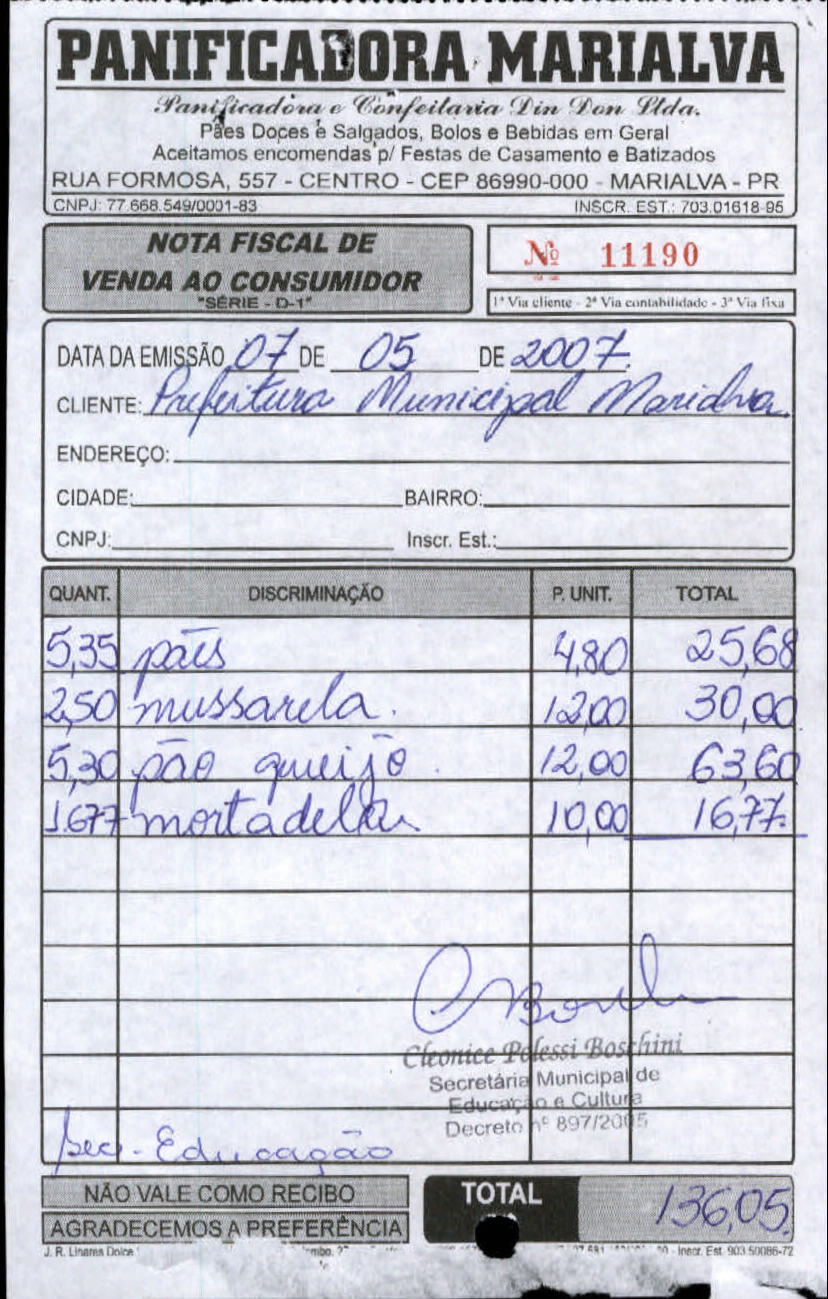 PANIFICADORA MARIALVA
Panificadora e Confeitaria Din Don Ltda.
Pães Doces e Salgados, Bolos e Bebidas em Geral
Aceitamos encomendas p/ Festas de Casamento e Batizados
RUA FORMOSA, 557 - CENTRO - CEP 86990-000 - MARIALVA - PR
CNPJ: 77.668.549/0001-83 INSCR. EST.: 703.01618-95
NOTA FISCAL DE
VENDA AO CONSUMIDOR
"SÉRIE - D-1"
Nº 11190
1ª Via cliente - 2ª Via contabilidade - 3ª Via fixa
DATA DA EMISSÃO 07 DE 05 DE 2007
CLIENTE: Prefeitura Municipal Marialva
ENDEREÇO:
CIDADE: BAIRRO:
CNPJ: Inscr. Est.:
QUANT. DISCRIMINAÇÃO P. UNIT. TOTAL
5,35 pães 4,80 25,68
2,50 mussarela. 12,00 30,00
5,30 pão queijo. 12,00 63,60
1677 mortadela 10,00 16,77
Cleonice Pelessi Boschini
Secretária Municipal de
Educação e Cultura
Decreto nº 897/2005
Sec. Educação
NÃO VALE COMO RECIBO
AGRADECEMOS A PREFERÊNCIA
TOTAL 136,05
J. R. Linares Dolce - Inscr. Est. 903.50086-72